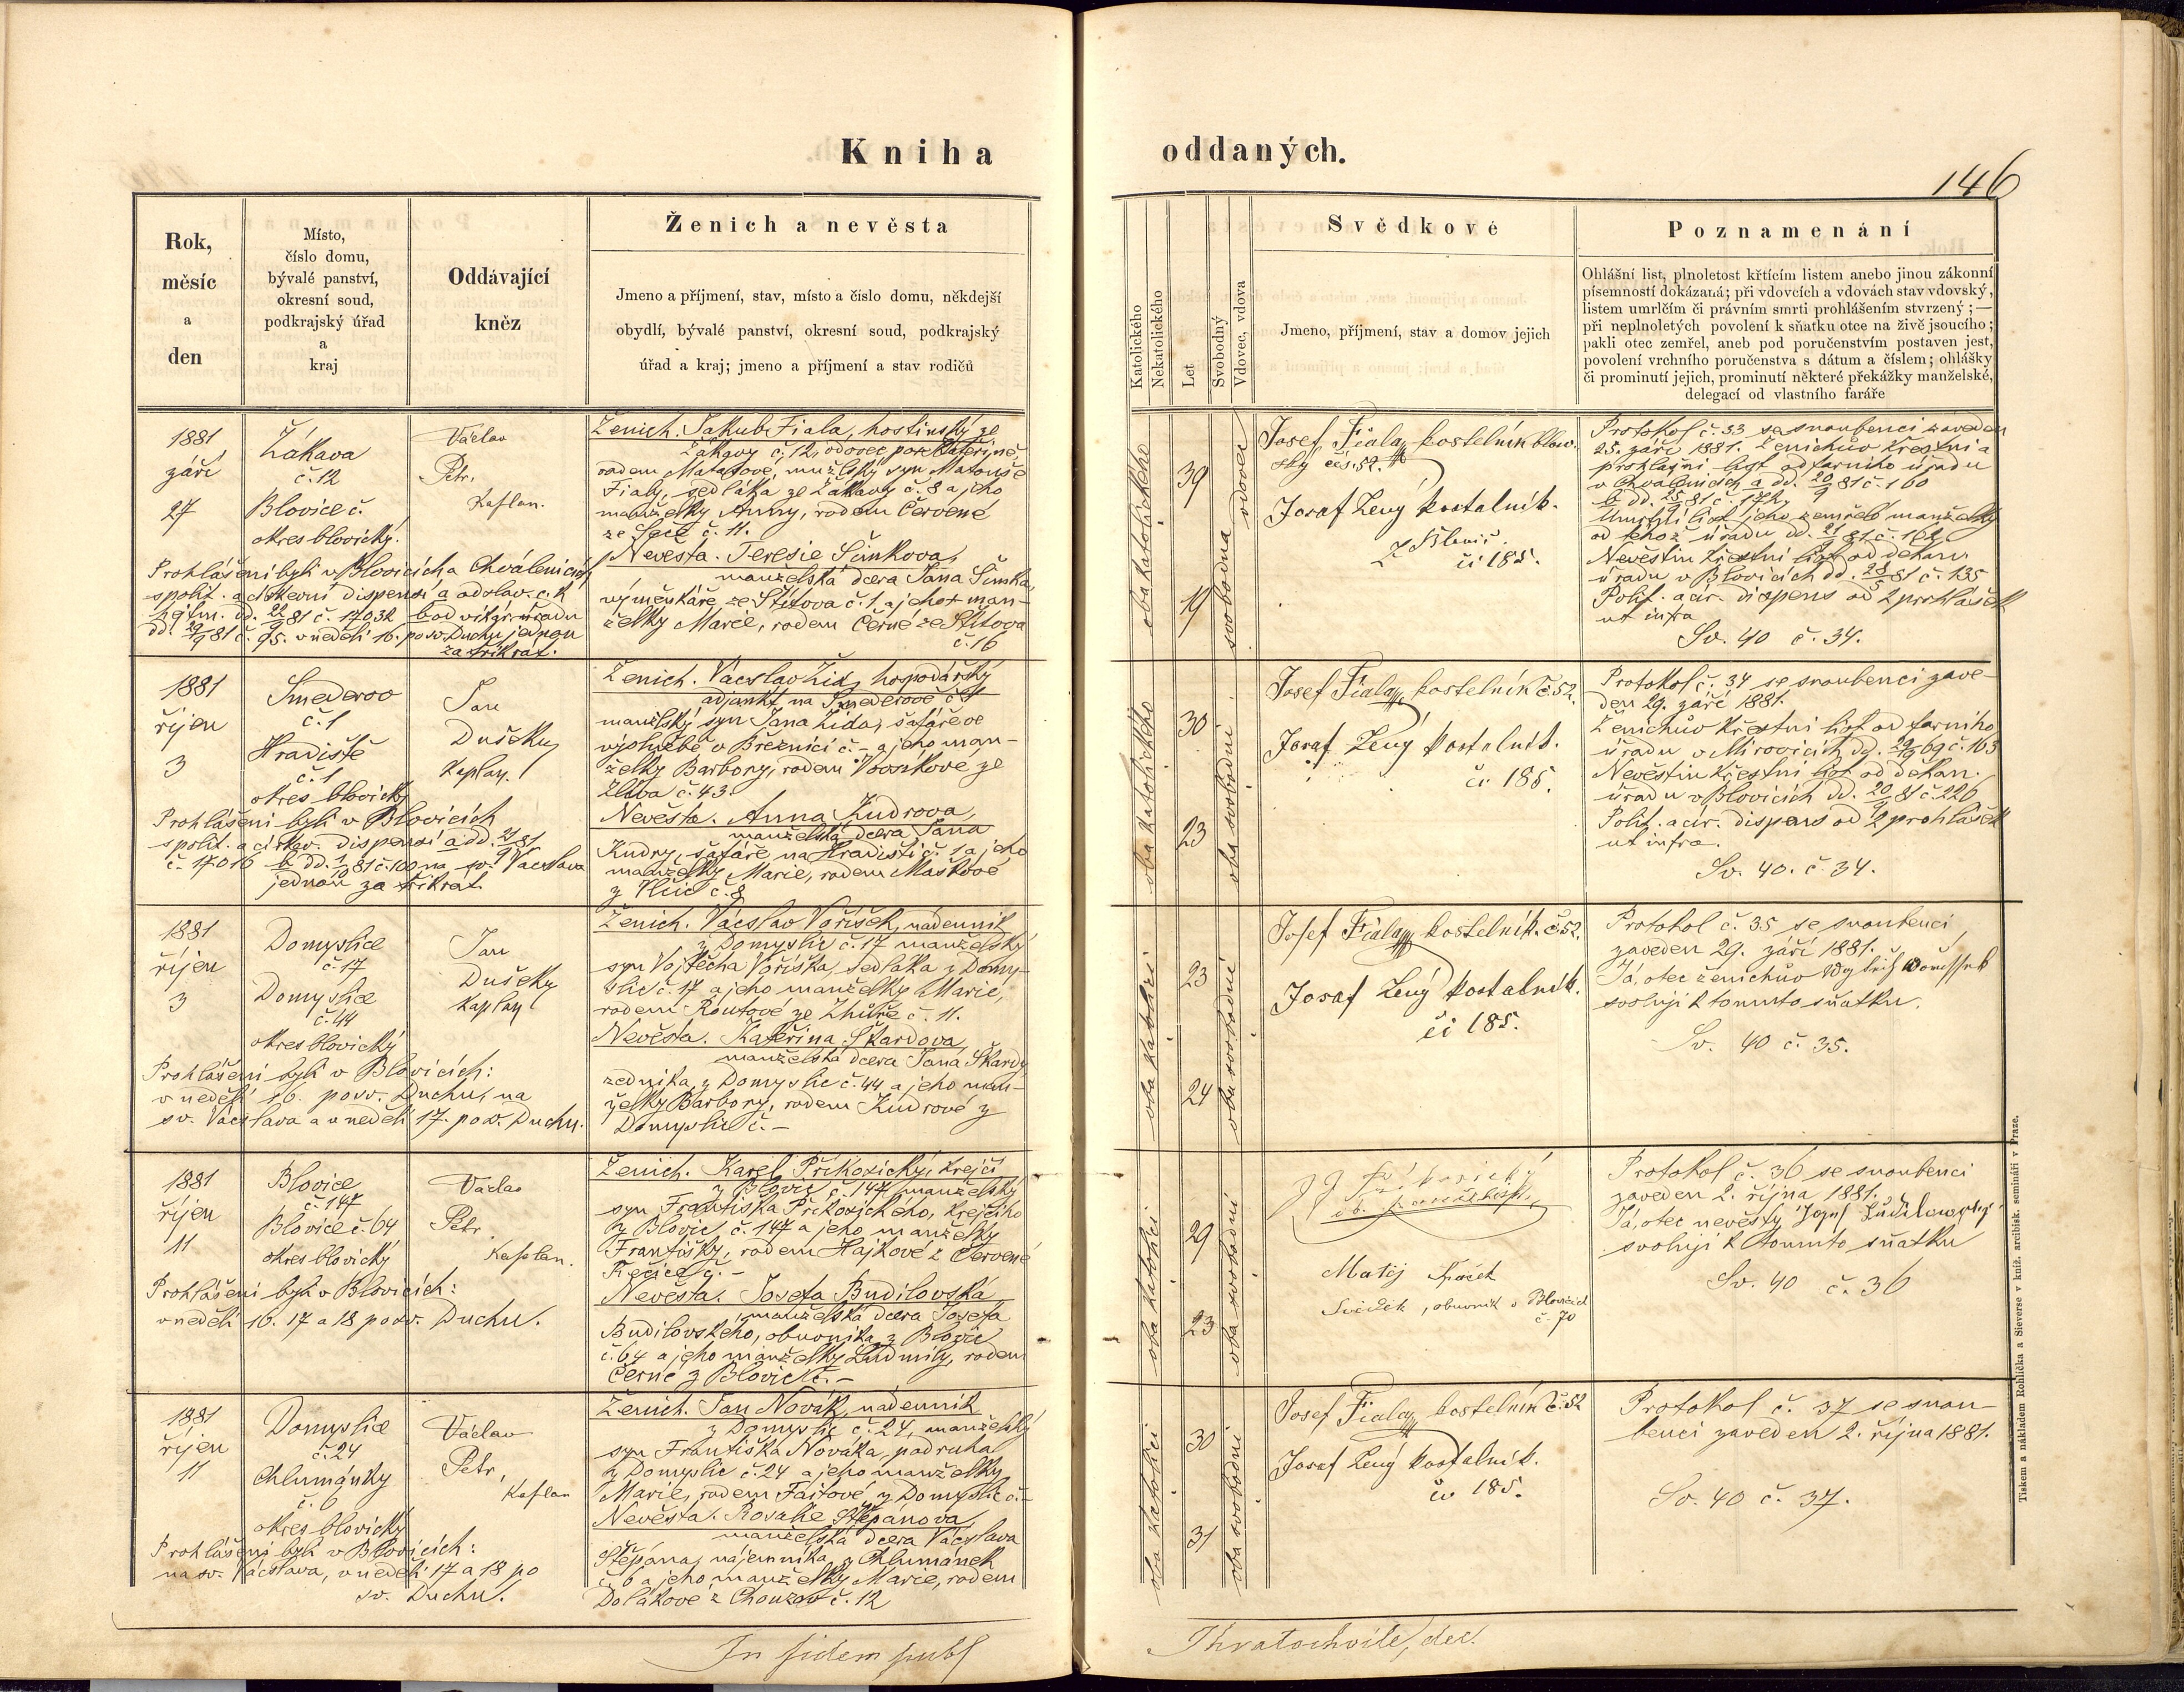 Kniha oddaných.
146
Rok,
měsíc
a
den
Místo,
číslo domu,
bývalé panství,
okresní soud,
podkrajský úřad
a
kraj
Oddávající
kněz
Ženich a nevěsta
Jmeno a příjmení, stav, místo a číslo domu, někdejší
obydlí, bývalé panství, okresní soud, podkrajský
úřad a kraj; jmeno a příjmení a stav rodičů
Katolického
Nekatolického
Let
Svobodný
Vdovec, vdova
Svědkové
Jmeno, příjmení, stav a domov jejich
Poznamenání
Ohlášní list, plnoletost křtícím listem anebo jinou zákonní
písemností dokázaná; při vdovcích a vdovách stav vdovský,
listem umrlčím či právním smrti prohlášením stvrzený; —
při neplnoletých povolení k sňatku otce na živě jsoucího;
pakli otec zemřel, aneb pod poručenstvím postaven jest,
povolení vrchního poručenstva s dátum a číslem; ohlášky
či prominutí jejich, prominutí některé překážky manželské,
delegací od vlastního faráře
1881
září
27
Žákava
č. 12
Blovice č.
okres blovický.
Václav
Petr,
Kaplan.
Ženich. Jakub Fiala, hostinský ze
Žákavy č. 12, vdovec po Kateřině,
rodem , manželský syn Matouše
Fialy, sedláka ze Žákavy č. 8 a jeho
manželky Anny, rodem Červené
ze Seče č. 11.
Nevěsta. Teresie Šimkova,
manželská dcera Jana Šimka,
výměnkáře ze Štítova č. 1 a jeho man-
želky Marie, rodem Černé ze Štítova
č. 16
Prohlášeni byli v Blovicích a Chválenicích
s polit. a církevní dispensí a od slav. c. k.
hejtm. dd. 22/9 81 č. 17032 b od vikár. úřadu
dd. 29/9 81 č. 95. v neděli 16. po sv. Duchu jednou
za třikrát.
oba katolického
39
19
vdovec
svobodna
Josef Fiala, kostelník blov.
ský čís. 52.
Josef Lený kostelník.
z
či 185.
Protokol č. 33 se snoubenci zaveden
25. září 1881. Ženichův křestní a
prohlášní list od farního úřadu
v Chválenicích a dd. 20/9 81 č. 160
b dd. 25/9 81 č. 172,
Umrlčí list jeho zemřelé manželky
od téhož úřadu dd. 21/9 81 č. 162
Nevěstin křestní list od děkan.
úřadu v Blovicích dd. 28/5 81 č. 135
Polit. a cír. dispens od 2 prohlášek
ut infra
Sv. 40 č. 34.
1881
říjen
3
Smederov
č. 1
Hradiště
č. 1
okres blovický
Jan
Dušeky
Kaplan.
Ženich. Václav Žid, hospodářský
adjunkt na Smederově č. 1
manželský syn Jana Žida, šafáře ve
výslužbě v Březnici č. – a jeho man-
želky Barbory, rodem Vovsíkové ze
Zliva č. 43.
Nevěsta. Anna Kudrova,
manželská dcera Jana
Kudry, šafáře na Hradišti č. 1 a jeho
manželky Marie, rodem Maškové
z Vlčic č. 8
Prohlášeni byli v Blovicích
s polit. a církev. dispensí a dd. 21/9 81
č. 17016 b dd. 1/10 81 č. 100 na sv. Václava
jednou za třikrát.
oba katolického
30
23
oba svobodni
Josef Fiala, kostelník č. 52.
Josef Lený kostelník.
či 185.
Protokol č. 34 se snoubenci zave-
den 29. září 1881.
Ženichův křestní list od farního
úřadu v Mirovicích dd. 29/9 69 č. 163
Nevěstin křestní list od děkan.
úřadu v Blovicích dd. 20/9 81 č. 226
Polit. a cír. dispens od 2 prohlášek
ut infra.
Sv. 40. č. 34.
1881
říjen
3
Domyslice
č. 17
Domyslice
č. 44
okres blovický
Jan
Dušeky
Kaplan
Ženich. Václav Voříšek, nádenník
z Domyslic č. 17 manželský
syn Vojtěcha Voříška, sedláka z Domy-
slic č. 17 a jeho manželky Marie,
rodem Routové ze Zhůře č. 11.
Nevěsta. Kateřina Škardova,
manželská dcera Jana Škardy
zedníka, z Domyslic č. 44 a jeho man-
želky Barbory, rodem Kudrové z
Domyslic č. –
Prohlášeni byli v Blovicích:
v neděli 16. po sv. Duchu, na
sv. Václava a v neděli 17. po sv. Duchu.
oba katolíci
23
24
oba svobodni
Josef Fiala, kostelník. č. 52.
Josef Lený kostelník.
či 185.
Protokol č. 35 se snoubenci
zaveden 29. září 1881.
Já, otec ženichův
svoluji k tomuto sňatku.
Sv. 40 č. 35.
1881
říjen
11
Blovice
č. 147
Blovice č. 64
okres blovický
Václav
Petr,
Kaplan.
Ženich. Karel Příkosický, krejčí
z Blovic č. 147 manželský
syn Františka Příkosického, krejčího
z Blovic č. 147 a jeho manželky
Františky, rodem Hájkové z Červené
Řečice č. –
Nevěsta. Josefa Budilovská
manželská dcera Josefa
Budilovského, obuvníka z Blovic
č. 64 a jeho manželky Ludmily, rodem
Černé z Blovic č. –
Prohlášeni byli v Blovicích:
v neděli 16. 17 a 18 po sv. Duchu.
oba katolíci
29
23
oba svobodni
Matěj
Svědek, obuvník v Blovicích
č. 70
Protokol č. 36 se snoubenci
zaveden 2. října 1881.
Já, otec nevěsty Josef
svoluji k tomuto sňatku
Sv. 40 č. 36
1881
říjen
11
Domyslice
č. 24
Chlumánky
č. 6
okres blovický
Václav
Petr,
Kaplan
Ženich. Jan Novák, nádenník
z Domyslic č. 24, manželský
syn Františka Nováka, podruha
z Domyslic č. 24 a jeho manželky
Marie, rodem Faitové z Domyslic č. –
Nevěsta. Rosalie Štěpánova,
manželská dcera Václava
Štěpána, nájemníka z Chlumánek
č. 6 a jeho manželky Marie, rodem
Dolákové z Chouzov č. 12
Prohlášeni byli v Blovicích:
na sv. Václava, v neděli 17 a 18 po
sv. Duchu.
oba katolíci
30
31
oba svobodni
Josef Fiala, kostelník č. 52
Josef Lený kostelník.
či 185.
Protokol č. 37 se snou-
benci zaveden 2. října 1881.
Sv. 40 č. 37.
In fidem publ
Jhratochvile, dec.
Tiskem a nákladem Rohlíčka a Sieverse v kníž. arcibisk. semináři v Praze.